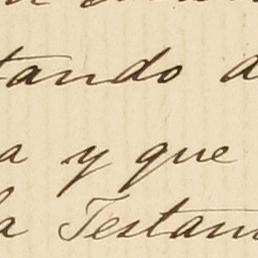 tando a
a y que
la Testam